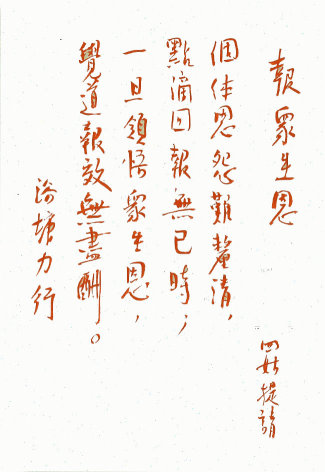 報眾生恩
四姑提請
個体恩怨難釐清，
點滴回報無已時；
一旦領悟眾生恩，
覺道報效無盡酬。
塘力行